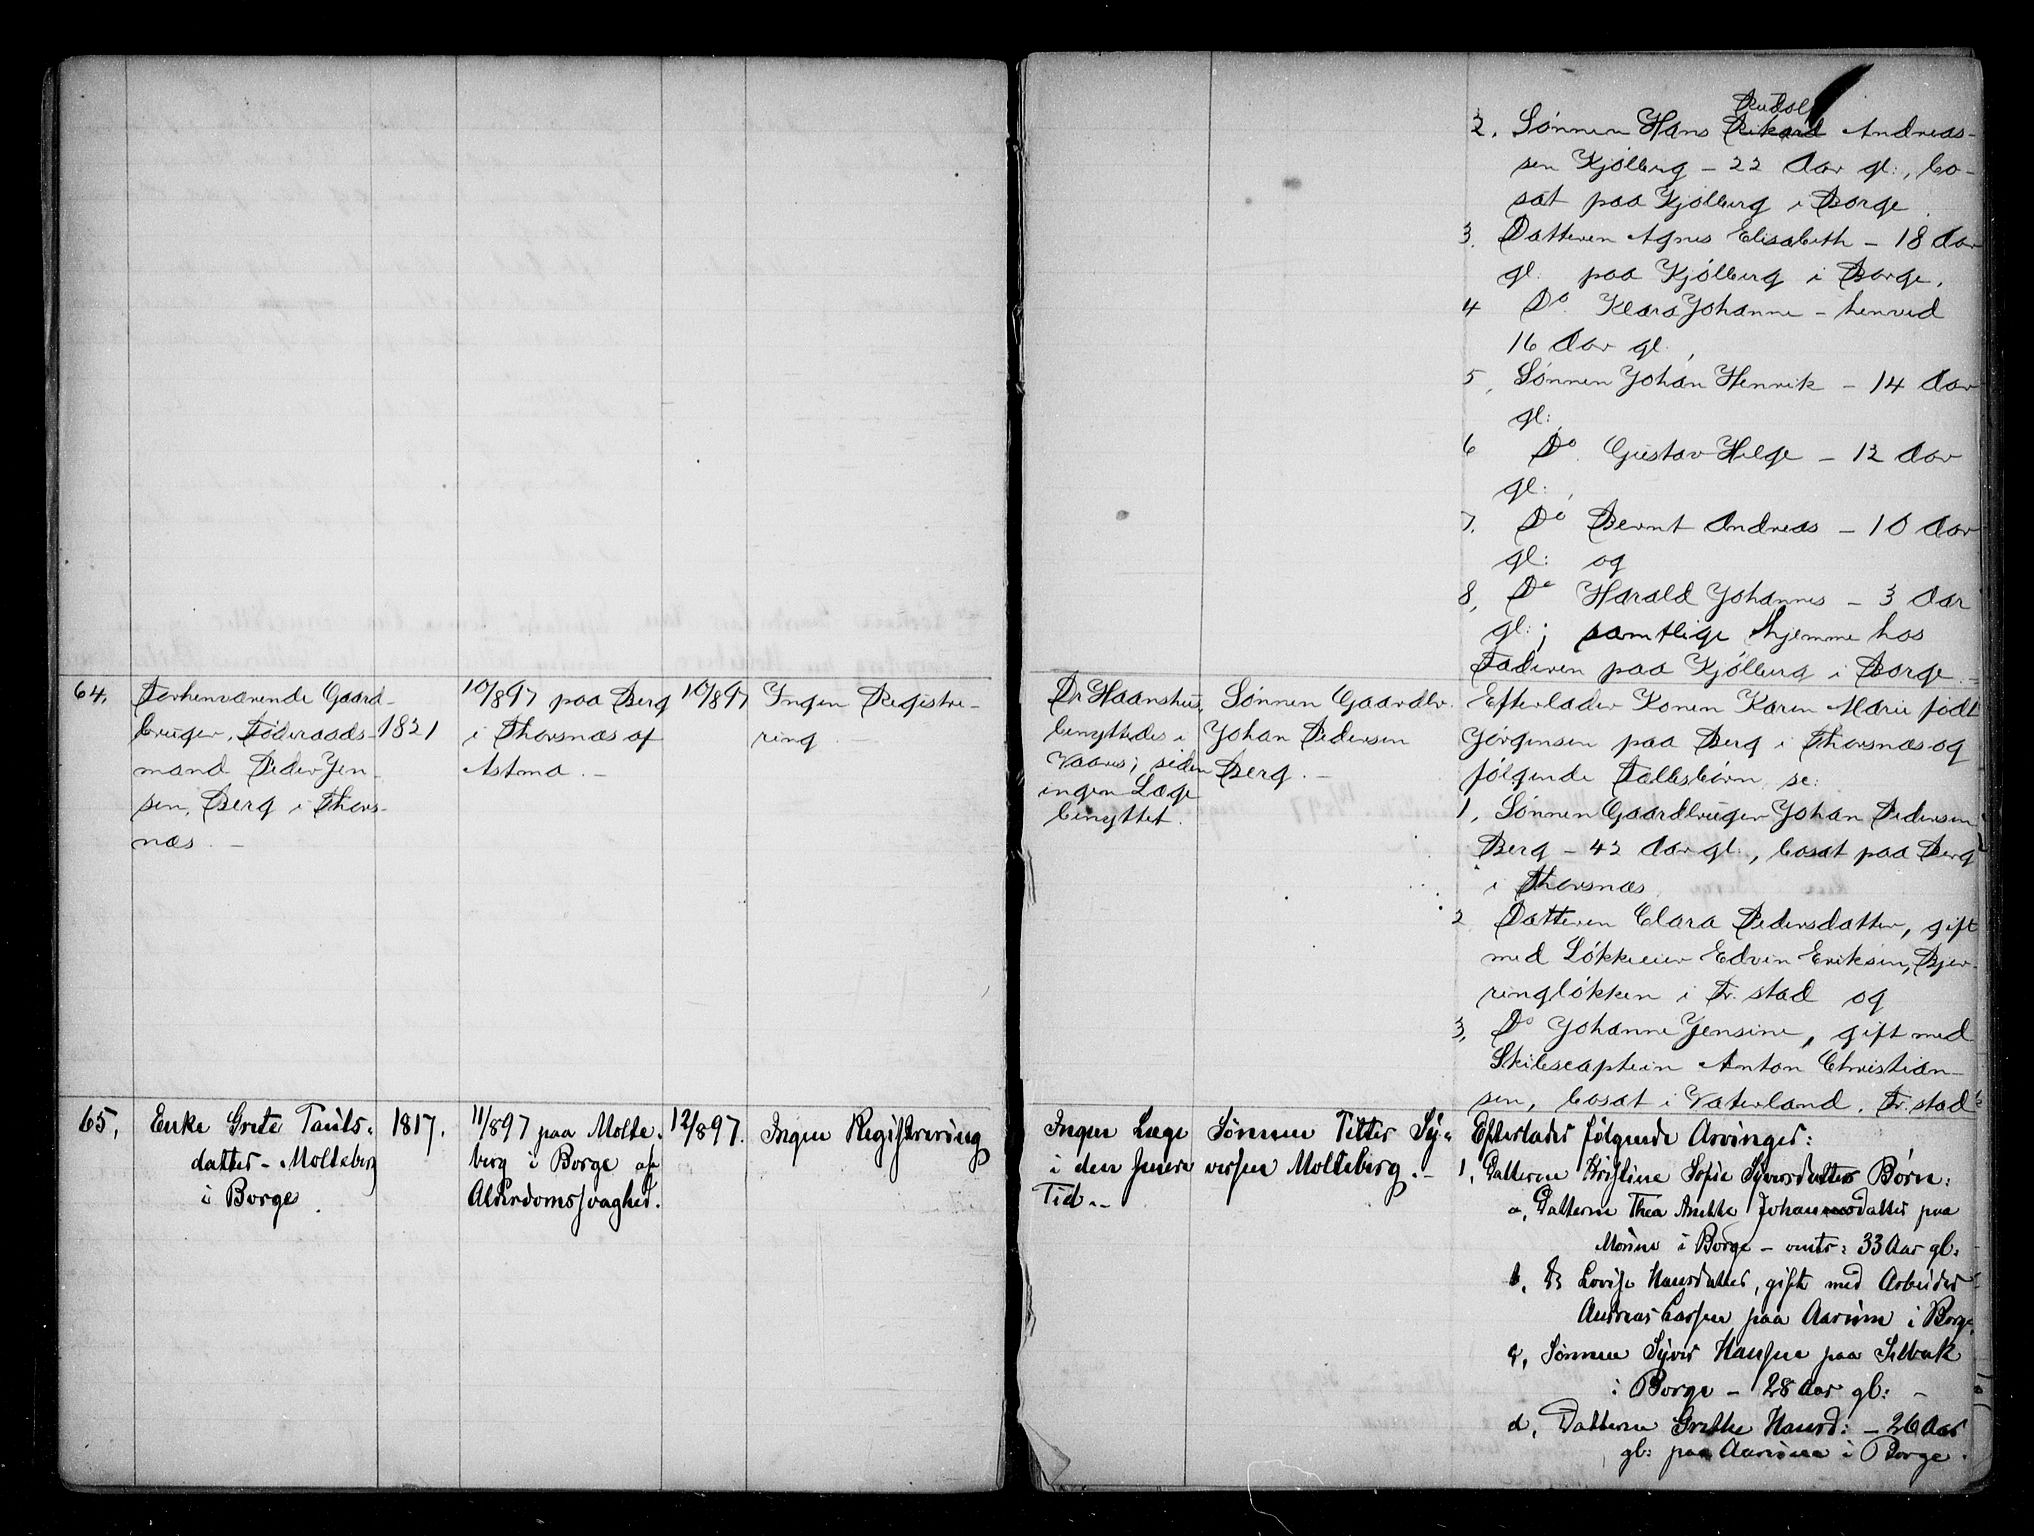 Rudolf
2. Sønnen Hans Rikard Andreas-
sen Kjølberg - 22 Aar gl:, bo-
sat paa Kjølberg i Borge.
3. Datteren Agnes Elisabeth - 18 Aar
gl. paa Kjølberg i Borge.
4 Do. Klara Johanne - henved
16 Aar gl.
5, Sønnen Johan Henrik - 14 Aar
gl:
6 Do. Gustav Helge - 12 Aar
gl:
7. Do Bernt Andreas - 10 Aar
gl: og
8, Do Harald Johannes - 3 Aar
gl:; samtlige hjemme hos
Faderen paa Kjølberg i Borge.
64. Forhenværende Gaard-
bruger, Føderaads-
mand Peder Jen-
sen, Berg i Thors-
næs. -
1821
10/897 paa Berg
i Thorsnæs af
Astma. -
10/897
Ingen Registre-
ring -
Dr Haanshus
benyttedes i
Vaares; siden
ingen Læge
benyttet.
Sønnen Gaardbr.
Johan Pedersen
Berg. -
Efterlader Konen Karen Marie født
Jørgensen paa Berg i Thorsnæs og
følgende Fællesbørn se:
1, Sønnen Gaardbruger Johan Pedersen
Berg - 42 Aar gl:, bosat paa Berg
i Thorsnæs.
2 Datteren Clara Pedersdatter, gift
med Løkkeeier Edvin Eriksen, Bjer-
ringløkken i Fr.stad og
3, Do Johanne Jensine, gift med
Skibscaptein Anton Christian-
sen, bosat i Vaterland. Fr.stad
65. Enke Grete Pauls-
datter - Molteberg
i Borge.
1817.
11/897 paa Molte-
berg i Borge af
Alderdomssvaghed.
12/897.
Ingen Registrering
Ingen Læge
i den senere
Tid. -
Sønnen Petter Sy-
versen Molteberg. -
Efterlader følgende Arvinger:
1, Datteren Kristine Sofie Syversdatters Børn:
a, Datteren Thea Anette Johannesdatter paa
Moum i Borge - omtr: 33 Aar gl:
b, Do Lovise Hansdatter, gift med Arbeider
Andreas Larsen paa Aarum i Borge.
c, Sønnen Syver Hansen paa Selbak
i Borge - 28 Aar gl: -
d, Datteren Grethe Hansd: - 26 Aar
gl: paa Aarum i Borge.